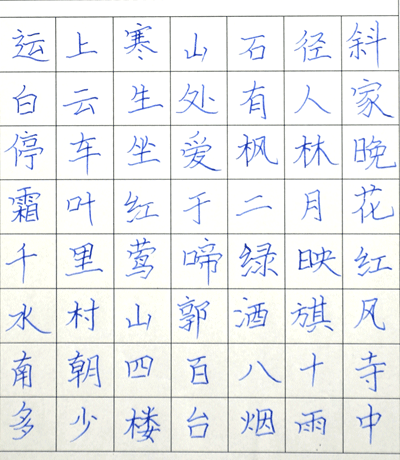 运上寒山石径斜
白云生处有人家
停车坐爱枫林晚
霜叶红于二月花
千里莺啼绿映红
水村山郭酒旗风
南朝四百八十寺
多少楼台烟雨中